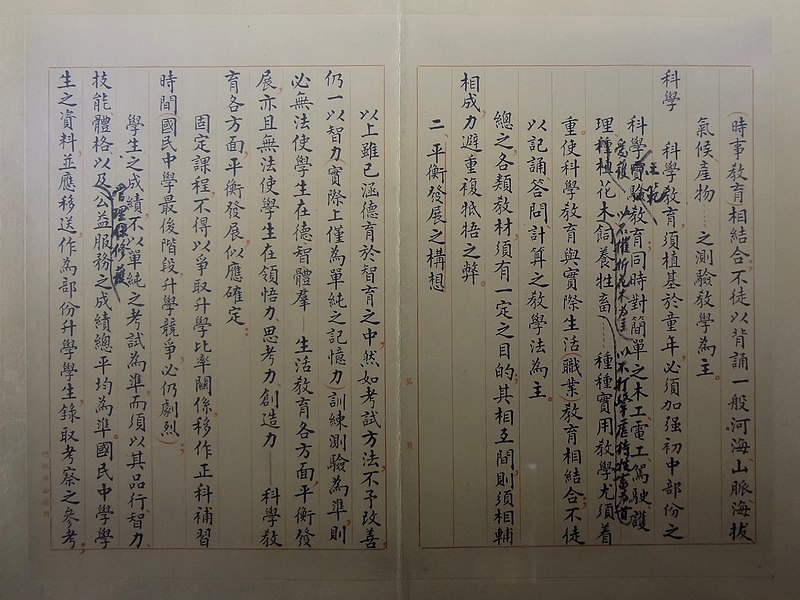 （時事教育）相結合不徒以背誦一般河海山脈海拔
氣候產物……之測驗教學為主
科學
科學教育須植基於童年，必須加强初中部份之
科學實驗教育同時對簡單之木工電工駕駛護
理種植花木飼養牲畜……種種實用教學尤須着
愛護
以不摧折花木為主
重使科學教育與實際生活（職業）教育相結合，不徒
以記誦答問計算之教學法為主。
總之各類教材須有一定之目的，其相互間則須相輔
相成，力避重複牴牾之弊。
二、平衡發展之構想
以上雖已涵德育於智育之中，然如考試方法，不予改善
仍一以智力，實際上僅為單純之記憶力，訓練測驗為準，則
必無法使學生在德智體羣——生活教育各方面，平衡發
展，亦且無法使學生在領悟力、思考力、創造力——科學教
育各方面，平衡發展，似應確定：
固定課程，不得以爭取升學比率關係，移作正科補習
時間（國民中學最後階段升學競爭，必仍劇烈）。
學生之成績，不以單純之考試為準，而須以其品行、智力、
技能、體格以及公益服務之成績總平均為準。國民中學學
管理與修養
生之資料，並應移送，作為部份升學學生錄取考察之參考。